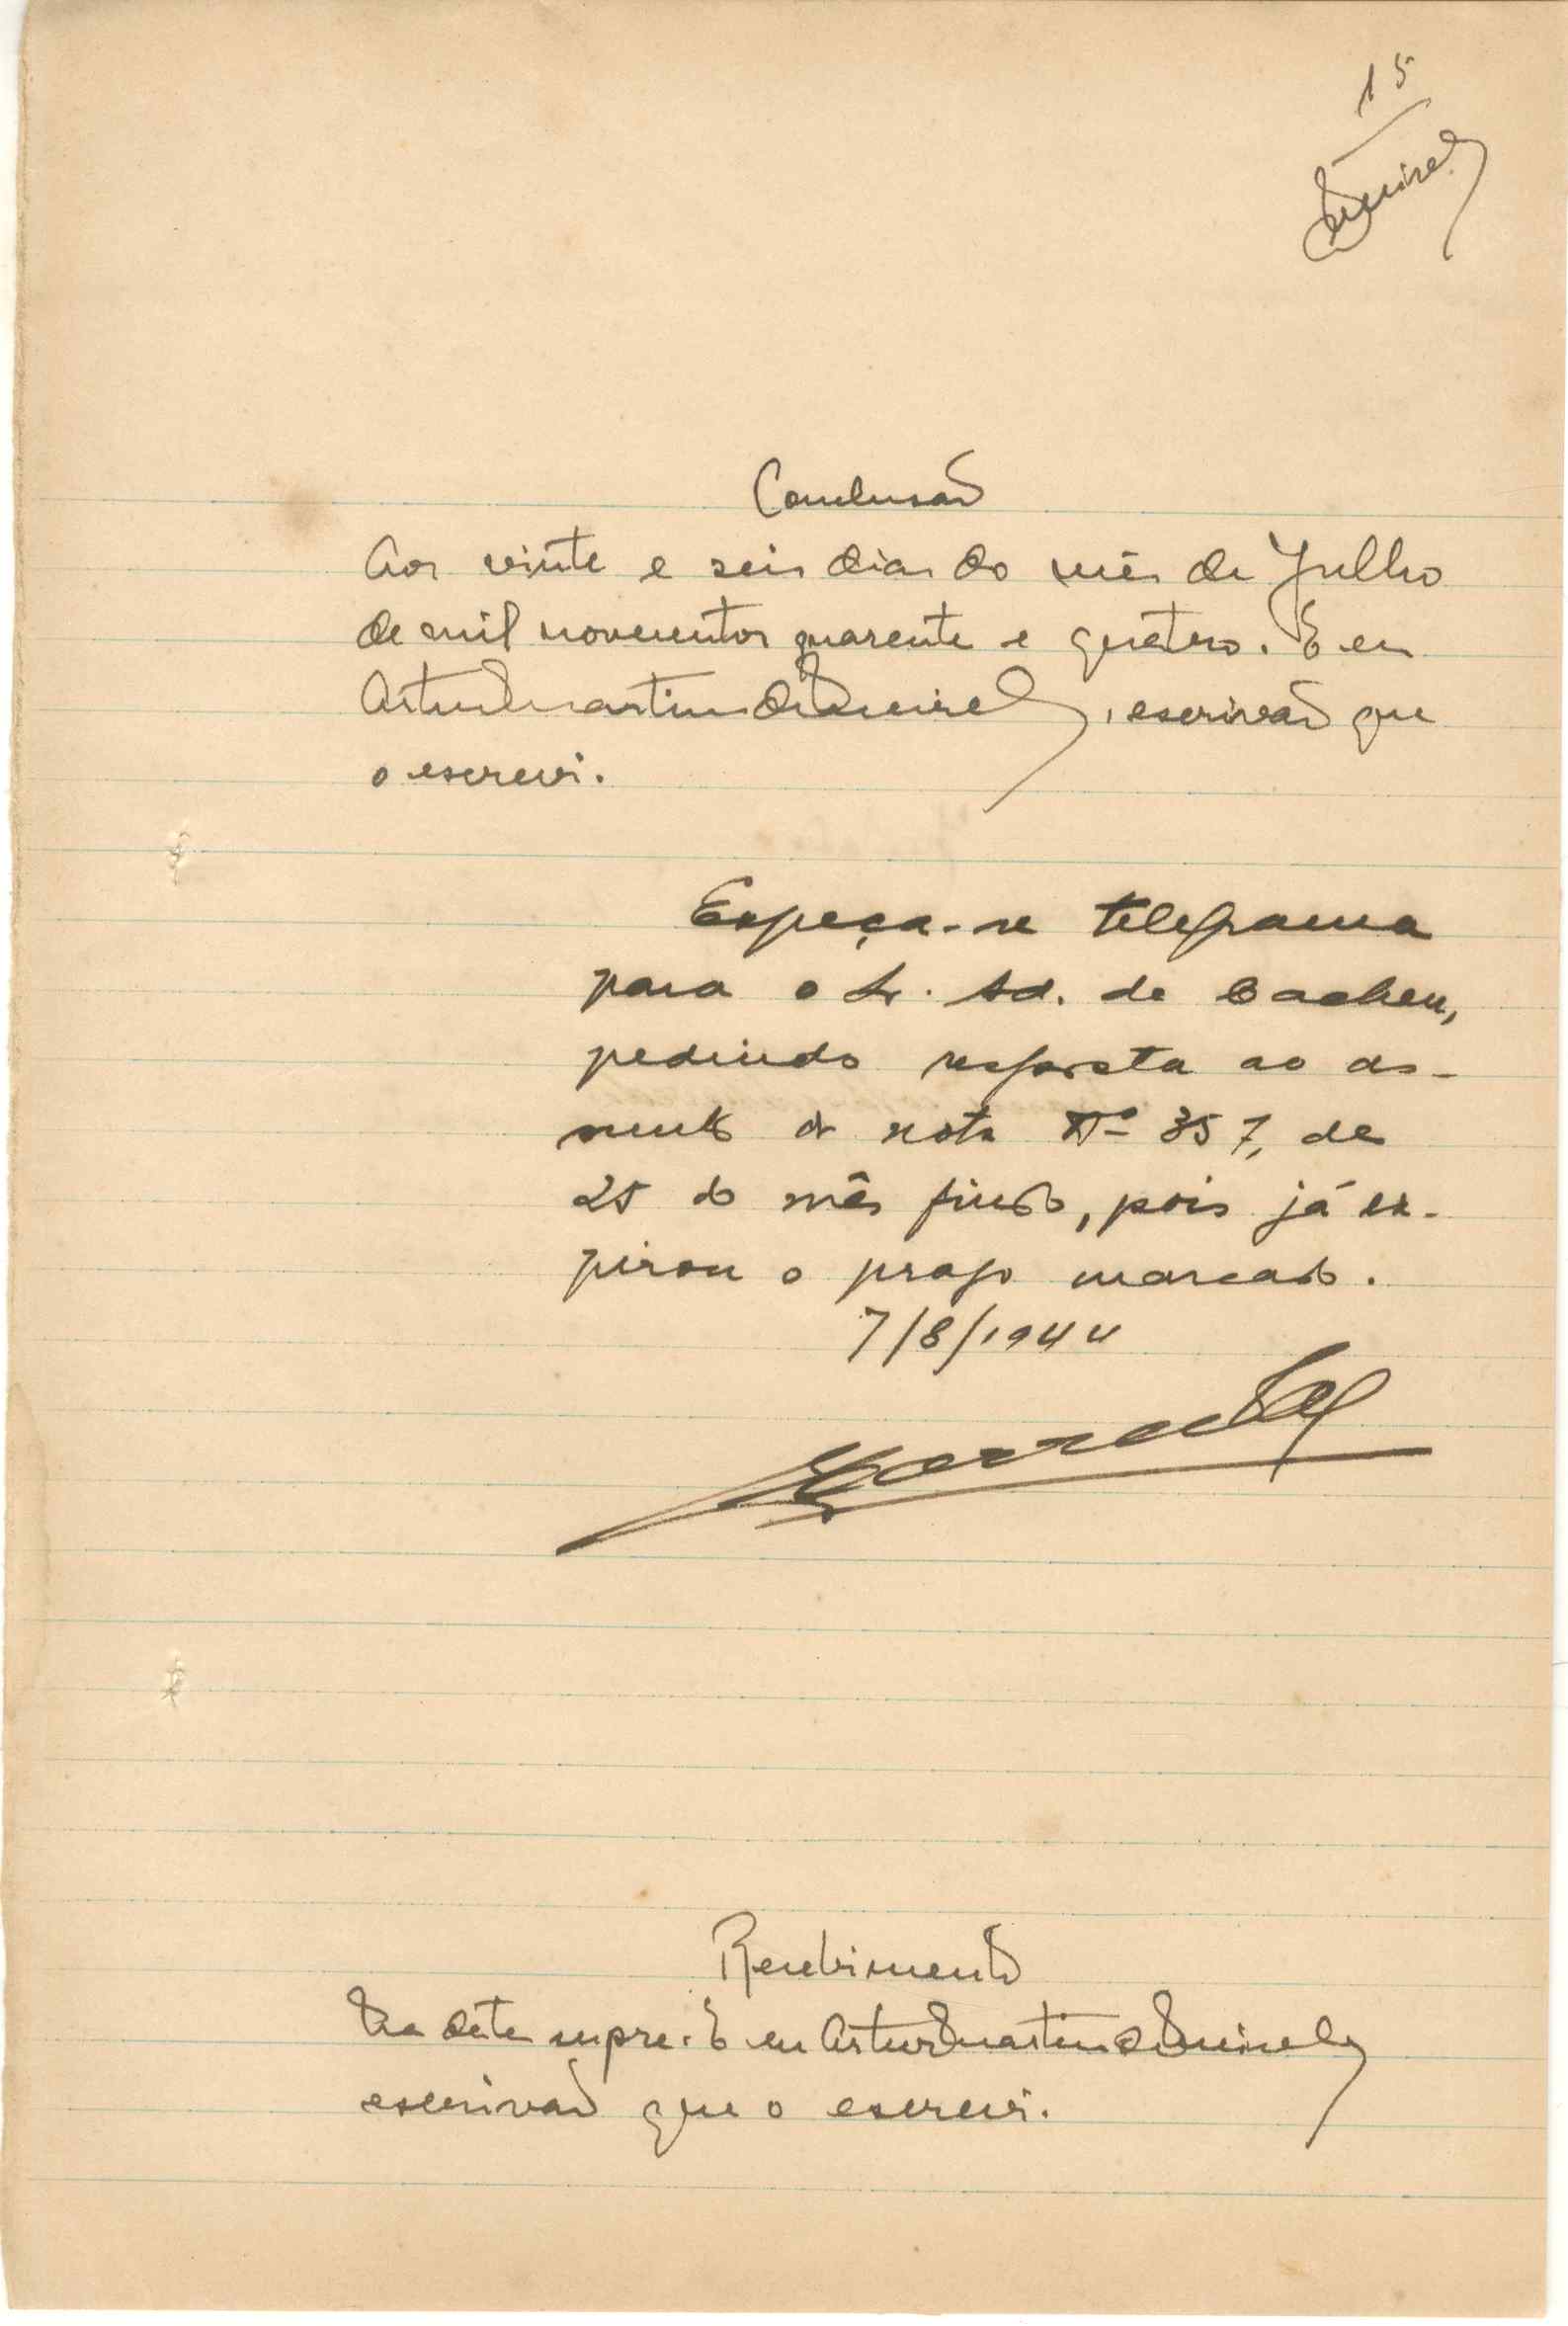 15
Conclusão
Aos vinte e seis dias do mês de Julho
de mil novecentos quarenta e quatro. E eu
Artur Martins de , escrivão que
o escrevi.
Expeça-se telegrama
para o Sr. Ad. de Cacheu,
pedindo resposta ao as-
sunto da nota Nº 357, de
25 do mês findo, pois já ex-
pirou o prazo marcado.
7/8/1944
Recebimento
Na data supra. E eu Artur Martins de
escrivão que o escrevi.